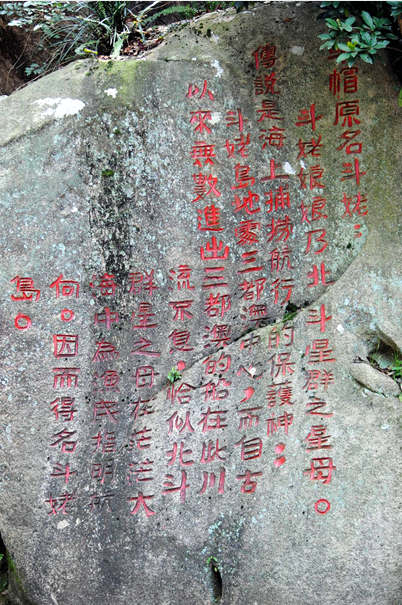 帽原名斗姥；
斗姥娘娘乃北斗星群之星母。
傳説是海上捕撈航行的保護神；
斗姥島地處三都澳中心，而自古
以來無數進出三都澳的船在此川
流不息，恰似北斗
群星之母在茫茫大
海中為漁民指明航
向。因而得名斗姥
島。